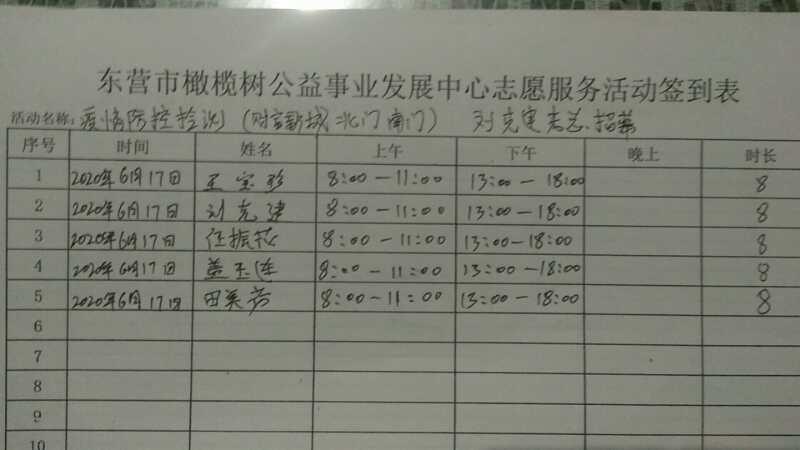 东营市橄榄树公益事业发展中心志愿服务活动签到表
活动名称: 疫情防控检测 (财富新城 北门 南门) 刘克建 招募
序号 时间 姓名 上午 下午 晚上 时长
1 2020年6月17日 王宝珍 8:00-11:00 13:00-18:00 8
2 2020年6月17日 刘克建 8:00-11:00 13:00-18:00 8
3 2020年6月17日 任振花 8:00-11:00 13:00-18:00 8
4 2020年6月17日 盖玉莲 8:00-11:00 13:00-18:00 8
5 2020年6月17日 田美芳 8:00-11:00 13:00-18:00 8
6
7
8
9
10